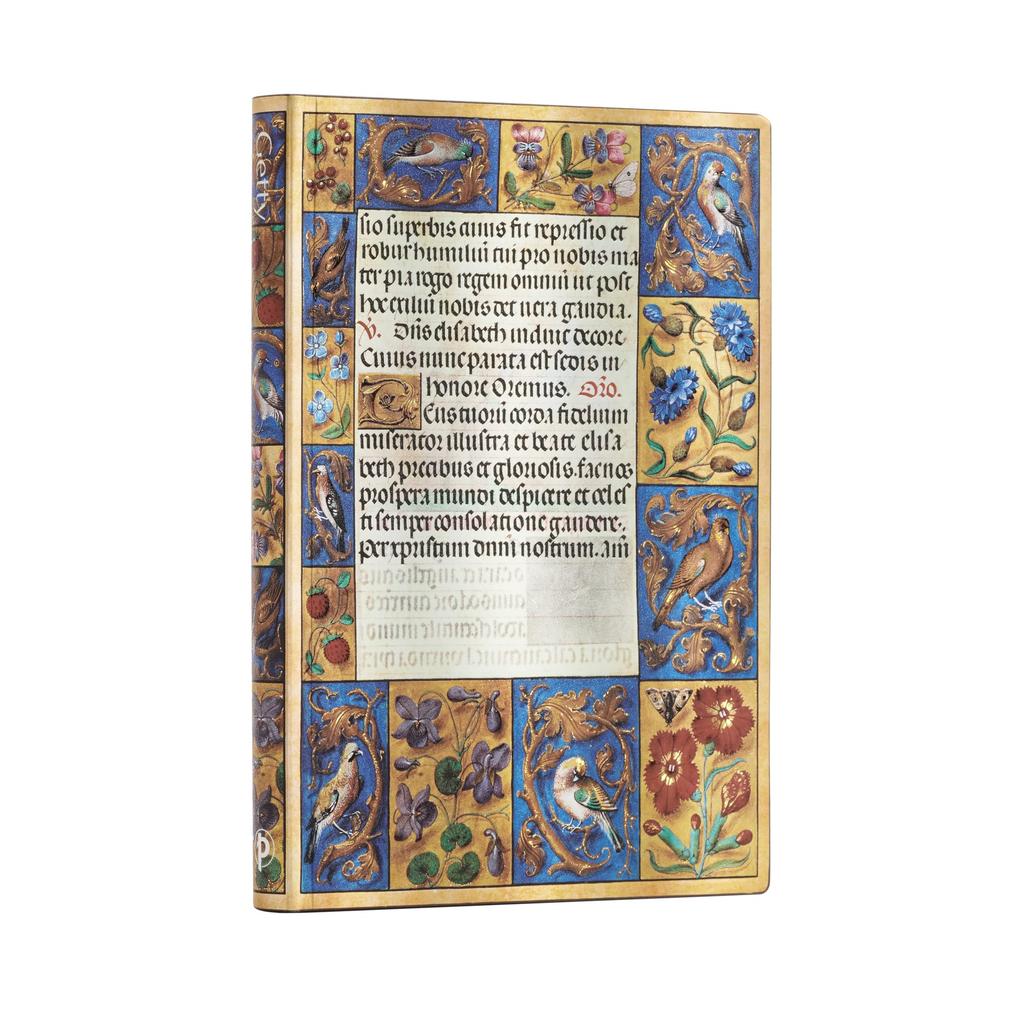 Getty
sio superbis cuius fit repressio et
robur humiliū cui pro nobis ma
ter pia rogo regem omniū ut post
hoc exiliū nobis det uera gaudia.
V. Dn̄s elisabeth induit decore
Cuius nunc parata est sedis in
honore Oremus. Or̄o.
Eus tuorū corda fidelium
miserator illustra et beate elisa
beth precibus et gloriosis. fac nos
prospera mundi despicere et celes
ti semper consolatione gaudere.
Per xpristum dnm̄ nostrum. Am̄